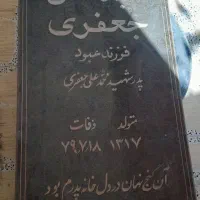 جعفری
فرزند عبود
پدر شهید محمد علی جعفری
متولد وفات
۱۳۱۷ ۷۹٫۷٫۱۸
آن گنج نهان در دل خانه پدرم بود